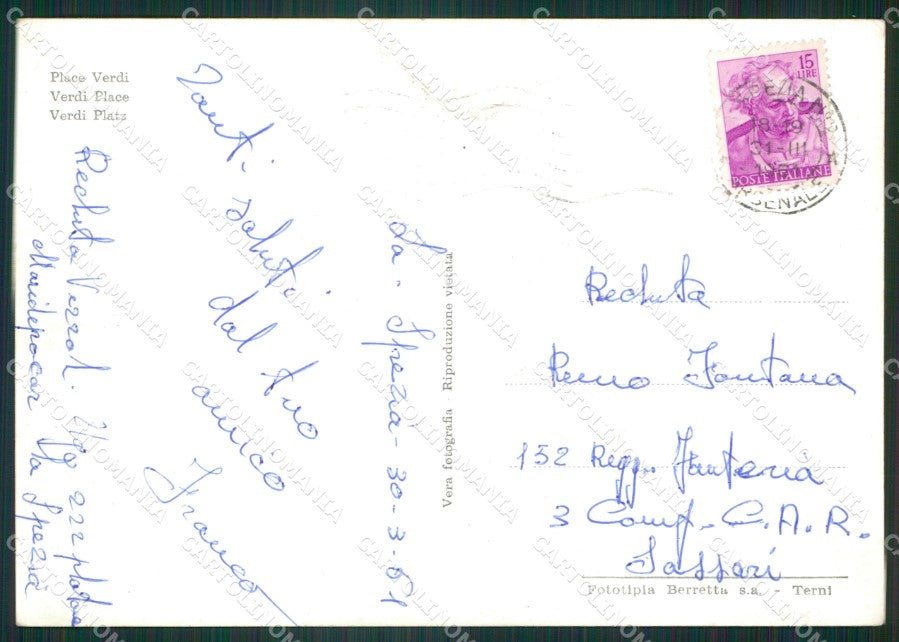 Place Verdi
Verdi Place
Verdi Platz
Tanti saluti
dal tuo
amico
Franco
La - Spezia - 30-3-61
Recluta
Maridepocar La Spezia
Vera fotografia - Riproduzione vietata
15
LIRE
18-19
31-III
POSTE ITALIANE
Recluta
Remo Fontana
152 Regg. Fanteria
3 Comp. C.A.R.
Sassari
Fototipia Berretta s.a. - Terni
CARTOLINOMANIA